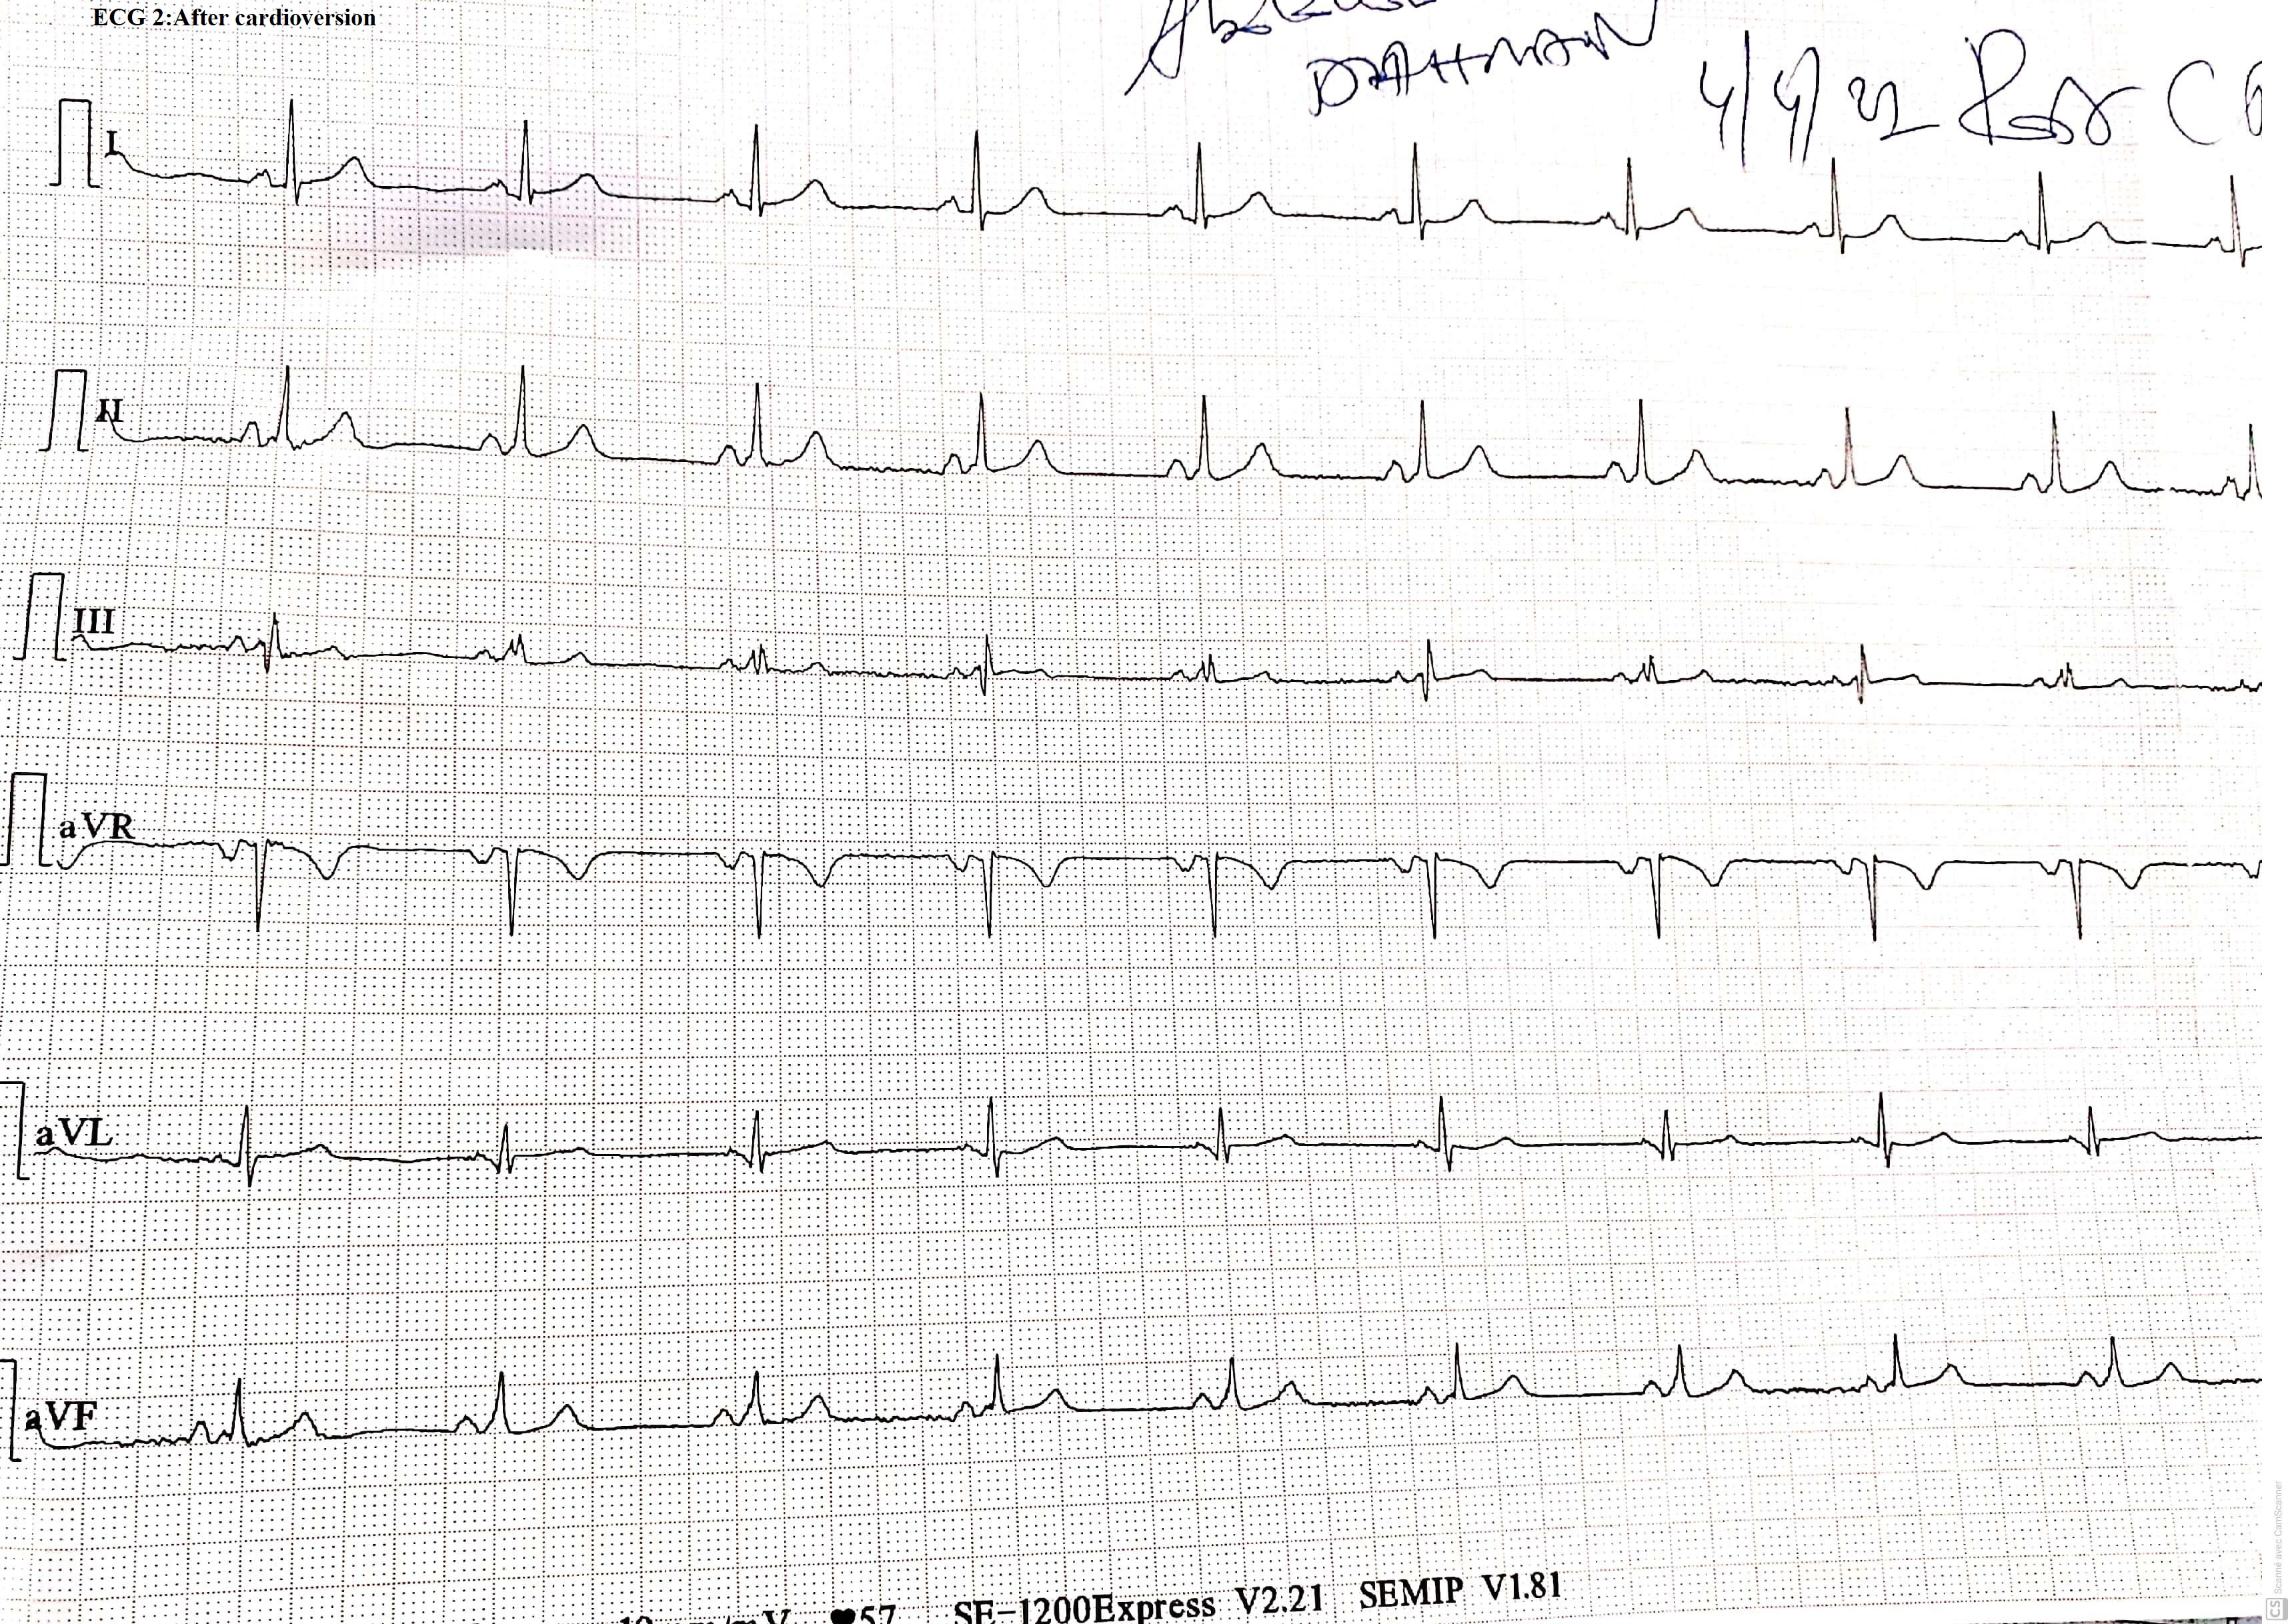 ECG 2:After cardioversion
DRAHMAN
4/4/22 Post
I
II
III
aVR
aVL
aVF
57 SE-1200Express V2.21 SEMIP V1.81
CS Scanné avec CamScanner